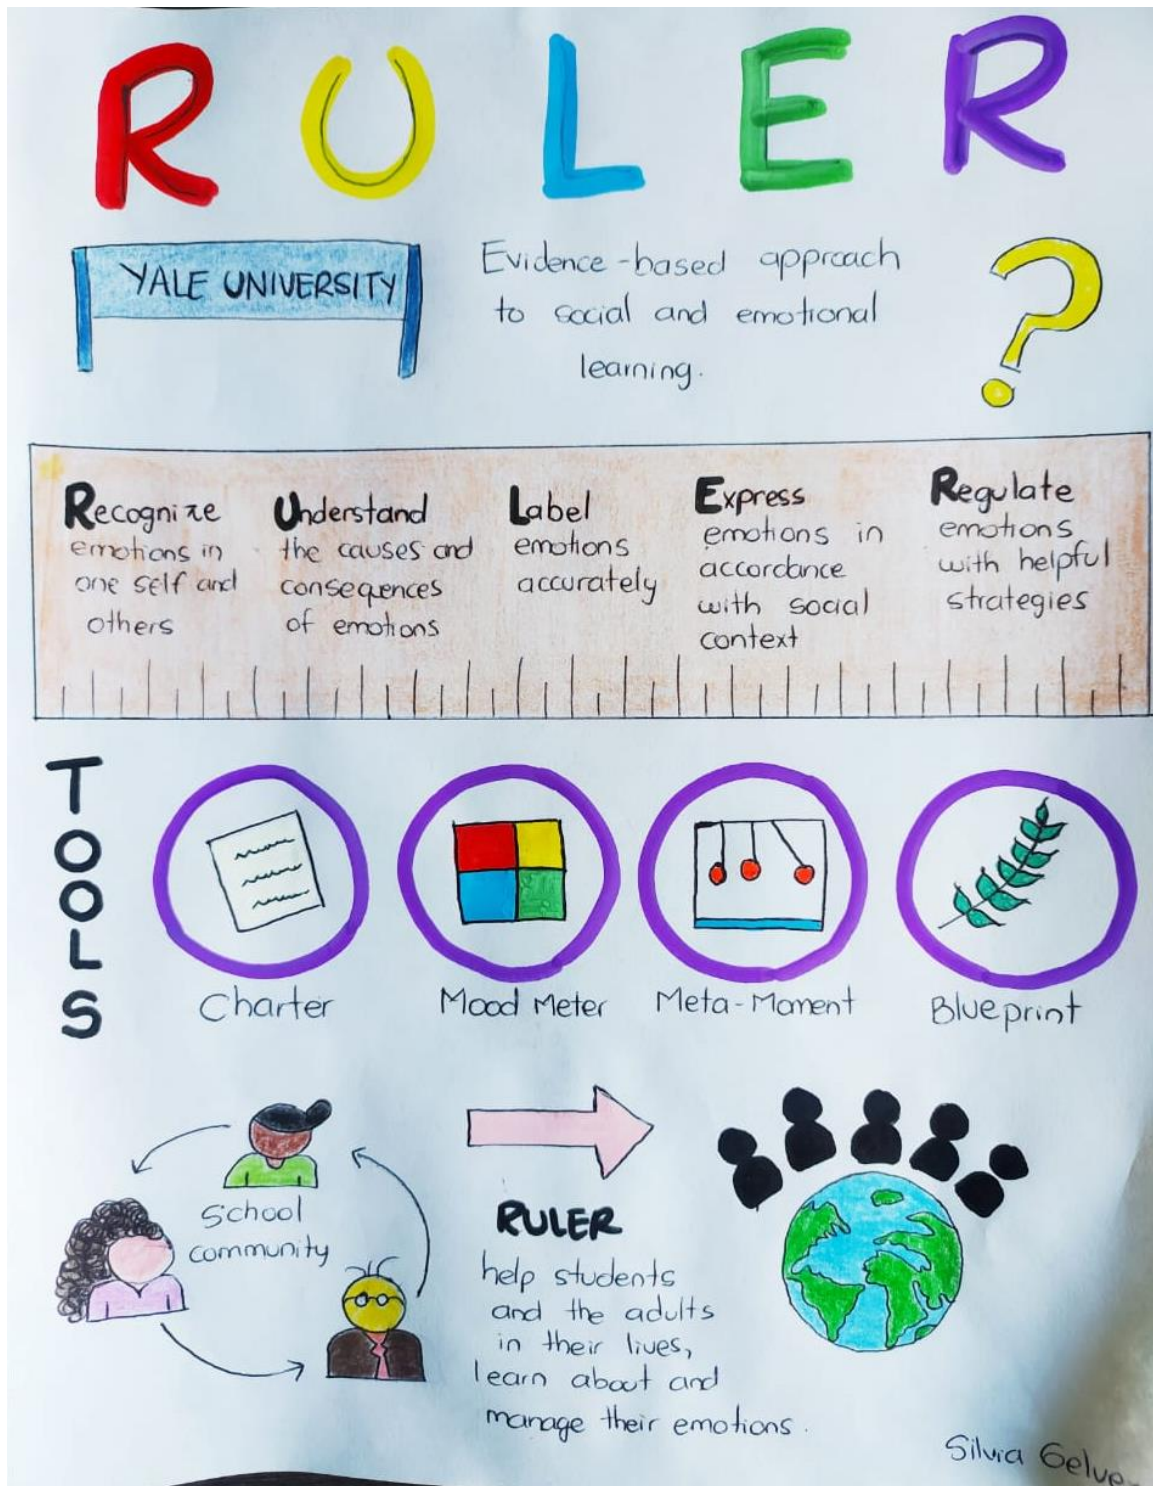 RULER
YALE UNIVERSITY
Evidence-based approach
to social and emotional
learning.
?
Recognize
emotions in
one self and
others
Understand
the causes and
consequences
of emotions
Label
emotions
accurately
Express
emotions in
accordance
with social
context
Regulate
emotions
with helpful
strategies
TOOLS
Charter
Mood Meter
Meta-Moment
Blueprint
School
community
RULER
help students
and the adults
in their lives,
learn about and
manage their emotions.
Silvia